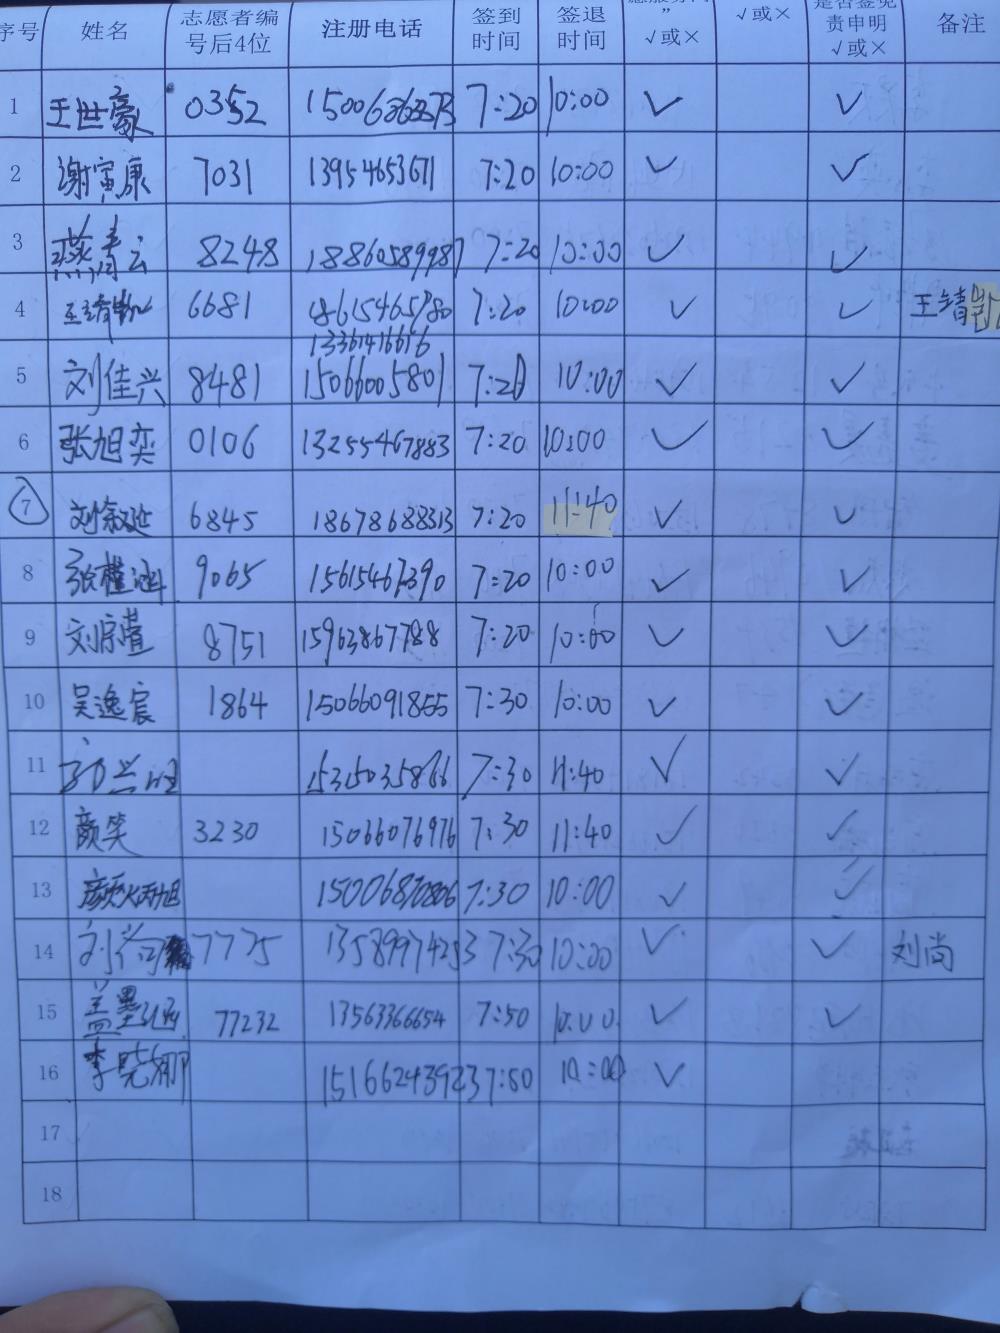 序号 姓名 志愿者编号后4位 注册电话 签到时间 签退时间 ” √或× √或× 是否签免责申明 √或× 备注
1 王世豪 0352 7:20 10:00 ✓ ✓
2 谢寅康 7031 13954653671 7:20 10:00 ✓ ✓
3 燕青云 8248 18860589987 7:20 10:00 ✓ ✓
4 6681 18615465780 7:20 10:00 ✓ ✓ 王靖
13361416616
5 刘佳兴 8481 15066005801 7:20 10:00 ✓ ✓
6 张旭奕 0106 13255467883 7:20 10:00 ✓ ✓
7 刘叙延 6845 18678688313 7:20 11:40 ✓ ✓
8 张槿涵 9065 15615467390 7:20 10:00 ✓ ✓
9 刘宗萱 8751 15963867788 7:20 10:00 ✓ ✓
10 吴逸宸 1864 15066091855 7:30 10:00 ✓ ✓
11 15315035866 7:30 11:40 ✓ ✓
12 颜笑 3230 15066076976 7:30 11:40 ✓ ✓
13 15006870806 7:30 10:00 ✓ ✓
14 刘尚 7775 13589974253 7:30 10:00 ✓ ✓ 刘尚
15 盖墨涵 77232 13563366654 7:50 10:00 ✓ ✓
16 李晓娜 15166243923 7:50 10:00 ✓
17
18